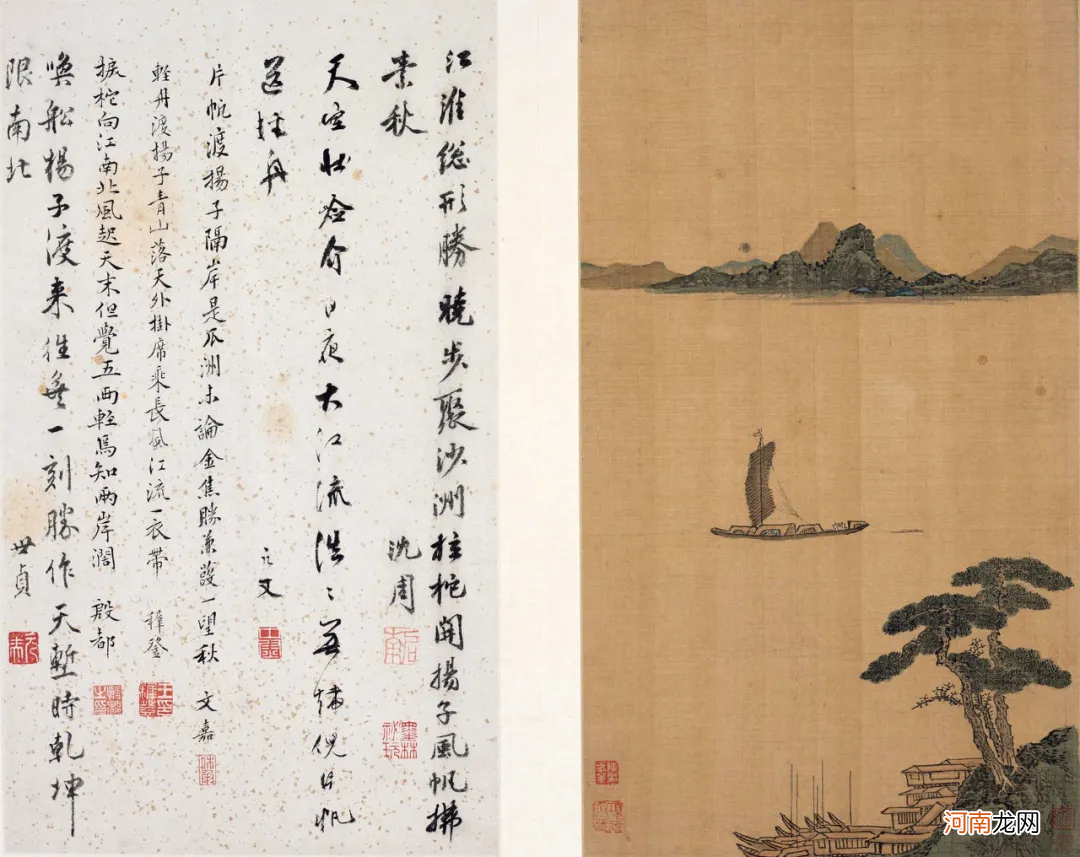 江淮緫形勝曉步聚沙洲拄柁開揚子風帆拂
素秋 沈周
天空日夜大江流浩〻無端倪片帆
送輕舟
片帆渡揚子隔岸是瓜洲未論金焦勝蒹葭一望秋 文嘉
輕舟渡揚子青山落天外掛席乘長風江流一衣帶 穉登
捩柁向江南北風起天末但覺五兩輕焉知兩岸濶 殷都
喚船楊子渡來往無一刻勝作天塹時乾坤
限南北 世貞
河南龙网